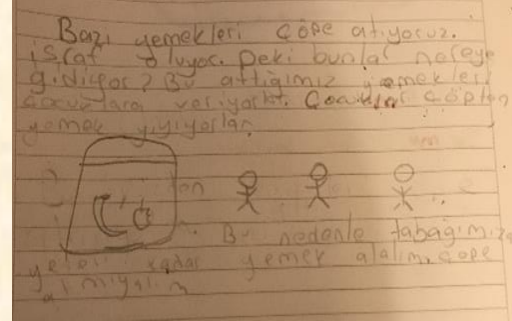 Bazı yemekleri çöpe atıyoruz.
israf oluyor. Peki bunlar nereye
gidiyor? Bu attığımız yemekleri
çocuklara veriyorlar. Çocuklar çöpten
yemek yiyiyorlar
Bu nedenle tabağımıza
yeteri kadar yemek alalım, çöpe
atmıyalım